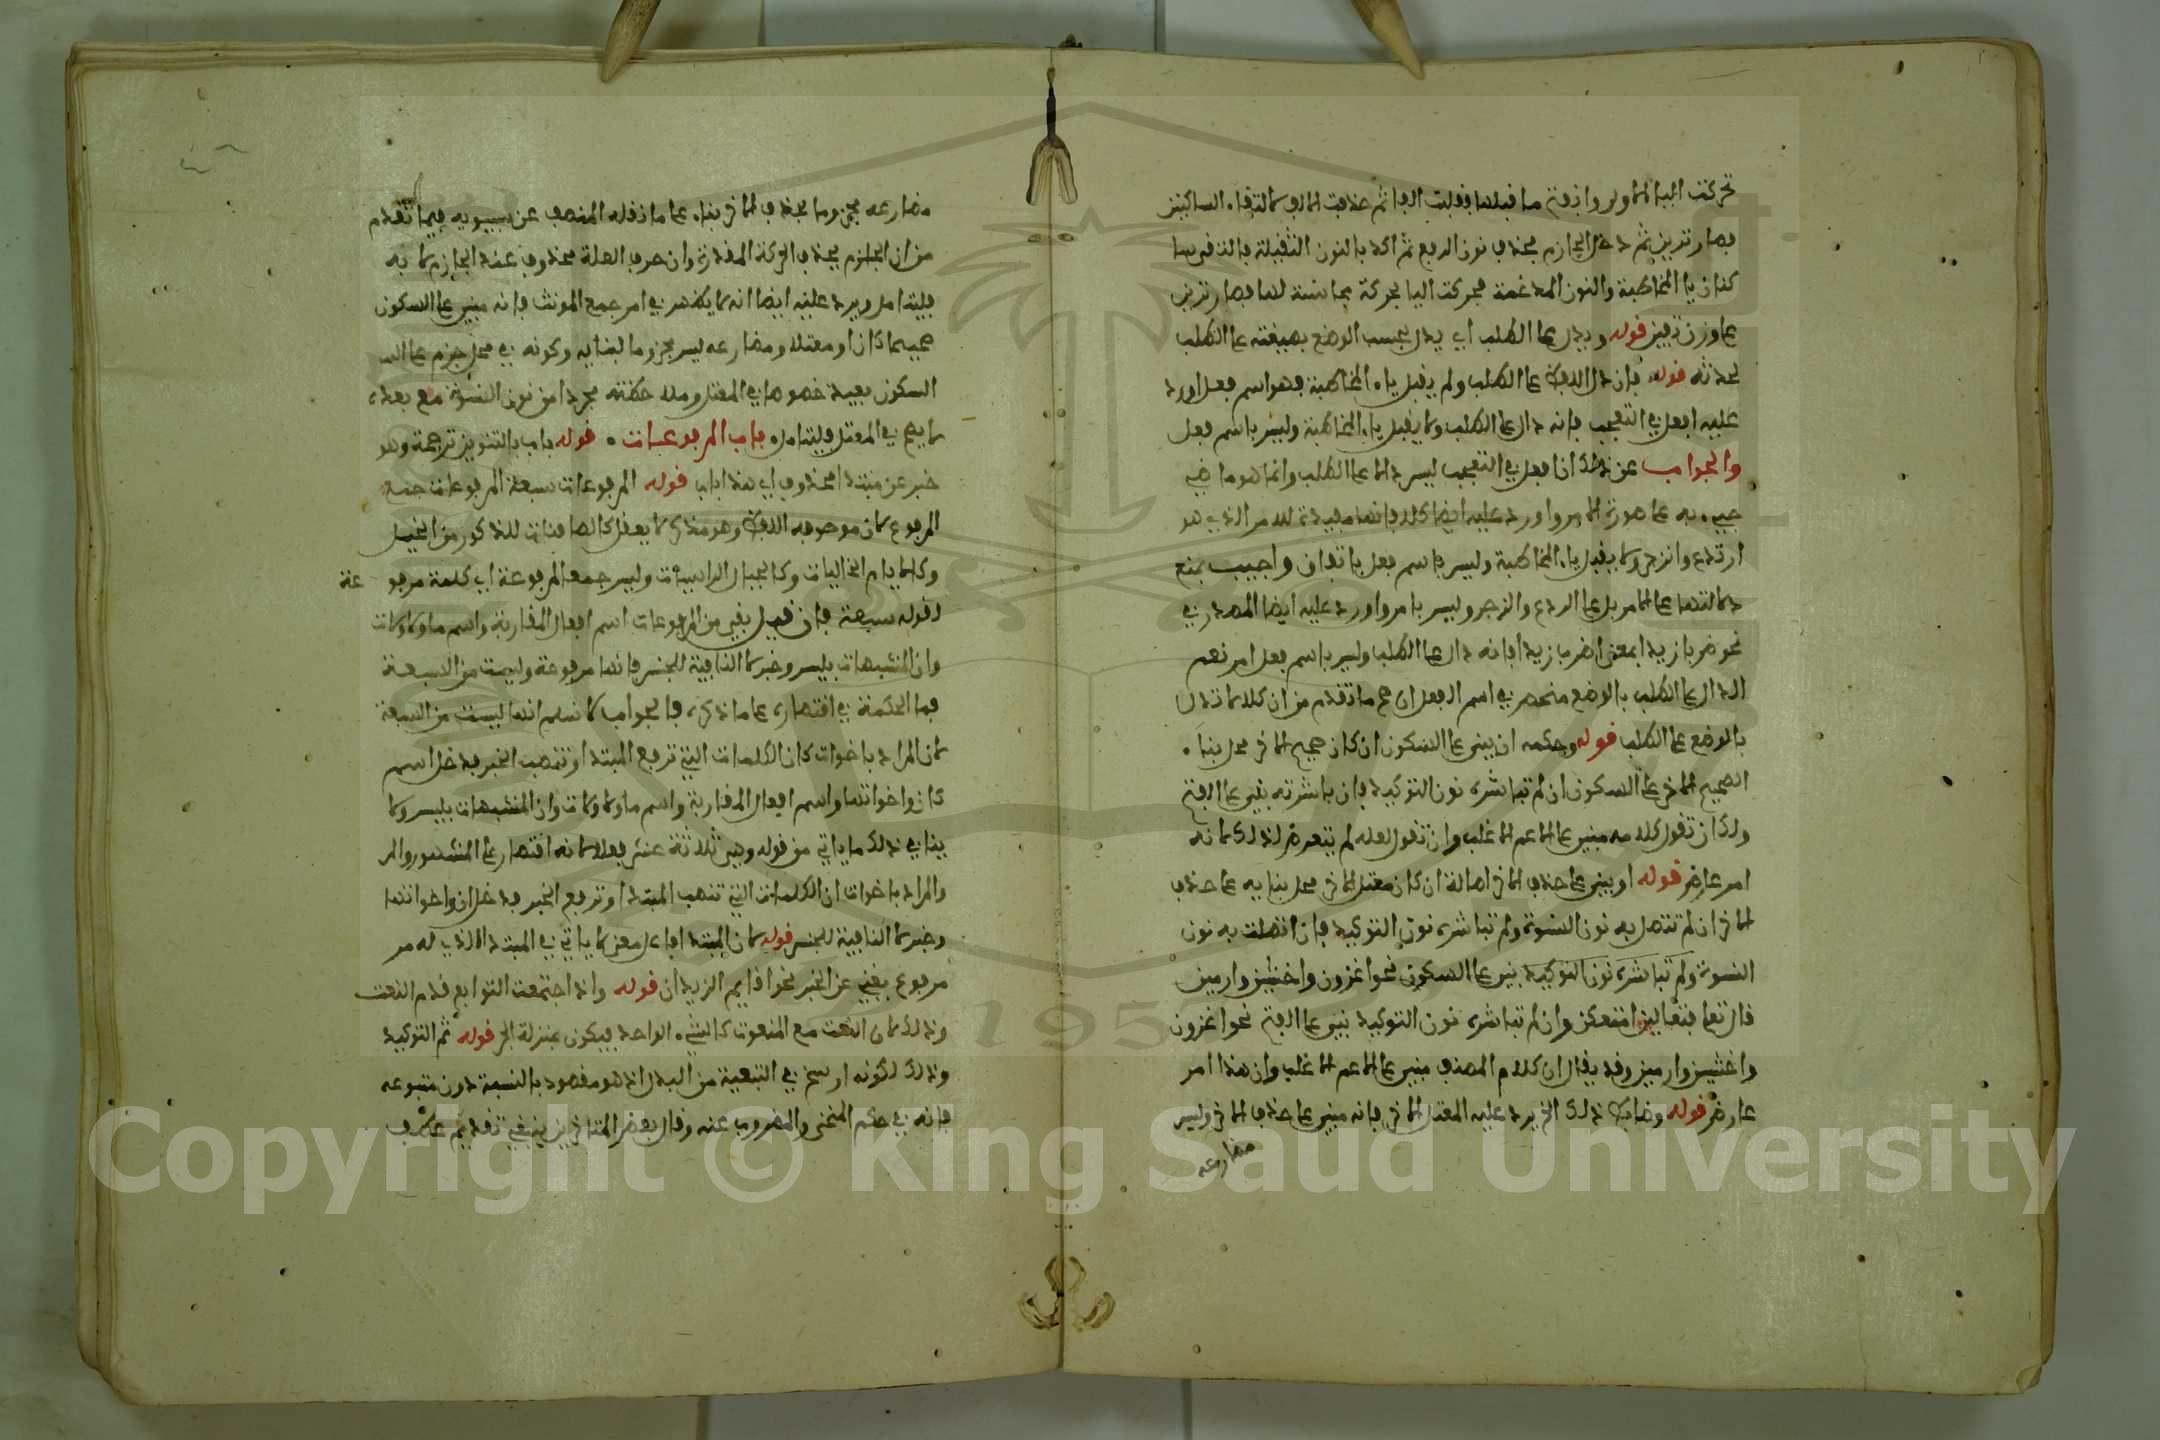 تحركت اليا الاولى وانفتح ما قبلها فقلبت الفا ثم حذفت الالف لالتقاء الساكنين
فصار ترين ثم دخل الجازم فحذف نون الرفع ثم اكد بالنون الثقيلة فالتقى سا
كنان يا المخاطبة والنون المدغمة فحركت اليا بحركة مجانسة لها فصار ترين
على وزن تفين قوله ويدل على الطلب اي يدل بحسب الوضع بصيغته على الطلب
لحدثه قوله فان دل اللفظ على الطلب ولم يقبل ياء المخاطبة فهو اسم فعل اورد
عليه افعل في التعجب فانه دال على الطلب ولا يقبل ياء المخاطبة وليس باسم فعل
والجواب عن ذلك ان افعل في التعجب ليس دالا على الطلب وانما هو ماض
جيء به على صورة الامر واورد عليه ايضا كلا فانها مفيدة للامر الذي هو
ارتدع وانزجر ولا يقبل ياء المخاطبة وليس باسم فعل باتفاق واجيب بمنع
دلالتها على الامر بل على الردع والزجر وليس بامر واورد عليه ايضا المصدر في
نحو ضربا زيدا بمعنى اضرب زيدا فانه دال على الطلب وليس باسم فعل امر نعم
الدال على الطلب بالوضع منحصر في اسم الفعل ان صح ما تقدم من ان كلا لا تدل
بالوضع على الطلب قوله وحكمه ان يبنى على السكون ان كان صحيح الاخر محل بناء
الصحيح الاخر على السكون ان لم تباشره نون التوكيد فان باشرته بني على الفتح
ولك ان تقول كلامه مبني على الاعم الاغلب وان تقول لعله لم يتعرض لذلك لانه
امر عارض قوله او يبنى على حذف الاخر اصالة ان كان معتل الاخر محل بنايه على حذف
الاخر ان لم تتصل به نون النسوة ولم تباشره نون التوكيد فان اتصلت به نون
النسوة ولم تباشره نون التوكيد بني على السكون نحو اغزون واخشين وارمين
قال تعالى فتعالين امتعكن وان لم تباشره نون التوكيد بني على الفتح نحو اغزون
واخشين وارمين وقد يقال ان كلام المصنف مبني على الاعم الاغلب وان هذا امر
عارض قوله وضابط ذلك الخ يرد عليه المعتل الاخر فانه مبني على حذف الاخر وليس
مضارعه
مضارعه مجزوما بحذف الاخر بناء على ما نقله المصنف عن سيبويه فيما تقدم
من ان الجازم يحذف الحركة المقدرة وان حرف العلة محذوف عند الجازم لا به
فليتامل ويرد عليه ايضا انه لا يظهر في امر جمع المونث فانه مبني على السكون
صحيحا كان او معتلا ومضارعه ليس مجزوما لبنايه وكونه في محل جزم على
السكون بعيد خصوصا في المعتل وملاحظته مجردا من نون النسوة مع بعده
لا يصح في المعتل فليتامل باب المرفوعات قوله باب بالتنوين ترجمة وهو
خبر عن مبتدا محذوف اي هذا باب قوله المرفوعات سبعة المرفوعات جمع
المرفوع لان موصوفه اللفظ وهو مذكر لا يعقل كالصافنات للذكور من الخيل
وكالايام الخاليات وكالجبال الراسيات وليس جمع المرفوعة اي كلمة مرفوعة
لقوله سبعة فان قيل بقي من المرفوعات اسم افعال المقاربة واسم ما ولا ولات
وان المشبهات بليس وخبر لا النافية للجنس فانها مرفوعة وليست من السبعة
فما الحكمة في اقتصاره على ما ذكره فالجواب لا نسلم انها ليست من السبعة
لان المراد باخوات كان الكلمات التي ترفع المبتدا وتنصب الخبر فدخل اسم
كان واخواتها واسم افعال المقاربة واسم ما ولا ولات وان المشبهات بليس ولا
ينافي ذلك ما ياتي من قوله وهي ثلاثة عشر فعلا لانه اقتصار على المشهور والمر
والمراد باخوات ان الكلمات التي تنصب المبتدا وترفع الخبر فدخل ان واخواتها
وخبر لا النافية للجنس قوله لان المبتدا فاعل معنى لا ياتي في المبتدا الذي له مر
مرفوع يغني عن الخبر نحو اقايم الزيدان قوله واذا اجتمعت التوابع قدم النعت
وذلك لان النعت مع المنعوت كالشيء الواحد فيكون بمنزلة الجزء قوله ثم التوكيد
وذلك لكونه ارسخ في التبعية من البدل اذ هو مقصود بالنسبة دون متبوعه
فانه في حكم المنحى والمضروب عنه وقال بعض المتاخرين ينبغي تقديم عطف
Copyright © King Saud University
1957